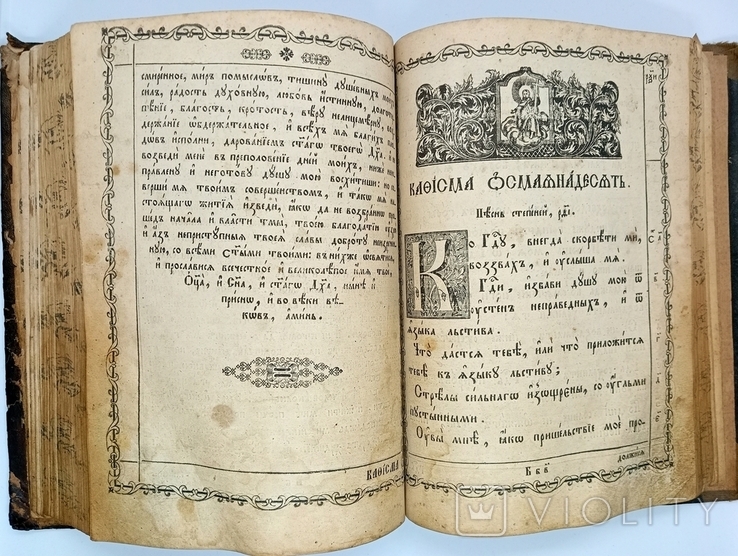 смиренное, миръ помыслѡвъ, тишину душевныхъ мои
силъ, радость духовную, любовь истинную, долгот
пѣніе, благость, кротость, вѣру нелицемѣрну, воз
держаніе ѡбдержательное, и всѣхъ мя благихъ пл
ѡвъ исполни, дарованіемъ ст҃агѡ твоегѡ дх҃а. и не
возведи мене въ преполовеніе дней моихъ, ниже неис
правлену и неготову душу мою восхитиши: но со
верши мя твоимъ совершенствомъ, и такѡ мя
стоящагѡ житія изведи, якѡ да не возбраннѡ про
шедъ начала и власти тмы, твоею благодатію
и азъ неприступныя твоея славы доброту неизречен
ную, со всѣми ст҃ыми твоими: въ нихже ѡсвятися
и прославися всечестное и великолѣпое имя твое,
Оц҃а, и Сн҃а, и ст҃агѡ Дх҃а, нынѣ и
приснѡ, и во вѣки вѣ
кѡвъ, аминь.
КАѲІСМА
КАѲІСМА ѺСМАЯНАДЕСЯТЬ.
Пѣснь степеней, рѳ҃і.
Ко гд҃у, внегда скорбѣти ми,
воззвахъ, и услыша мя.
Гд҃и, избави душу мою ѿ
устенъ неправедныхъ, и ѿ
языка льстива.
Что дастся тебѣ, или что приложится
тебѣ къ языку льстиву;
Стрѣлы сильнагѡ изѡщрены, со угльми
пустынными.
Оувы мнѣ, якѡ пришельствіе мое про-
должися
VIOLITY